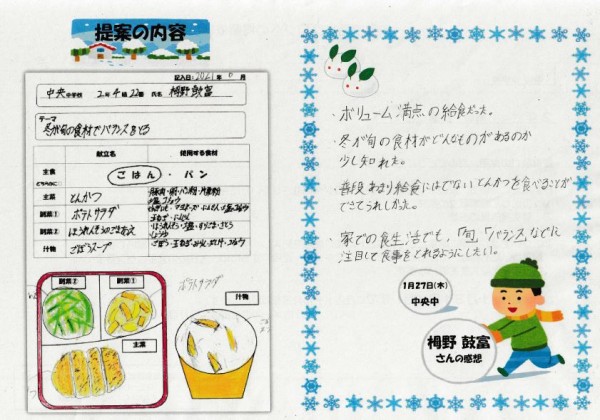 提案の内容
記入日：2021年 月
中央中学校 2年4組22番 氏名 栂野 鼓富
テーマ
冬が旬の食材でバランスをとろう
献立名 使用する食材
主食 ごはん・パン
主菜 とんかつ 豚肉・卵・パン粉・片栗粉
塩 コショウ
副菜① ポテトサラダ
副菜② ほうれんそうのごまあえ ほうれんそう
汁物 ごぼうスープ ごぼう・玉ねぎ
副菜② 副菜①
主菜
ポテトサラダ
汁物
・ボリューム満点の給食だった。
・冬が旬の食材がどんなものがあるのか
少し知れた。
・普段あまり給食にはでないとんかつを食べることが
できてうれしかった。
・家での食生活でも、「旬」「バランス」などに
注目して食事をとれるようにしたい。
1月27日(木)
中央中
栂野 鼓富
さんの感想